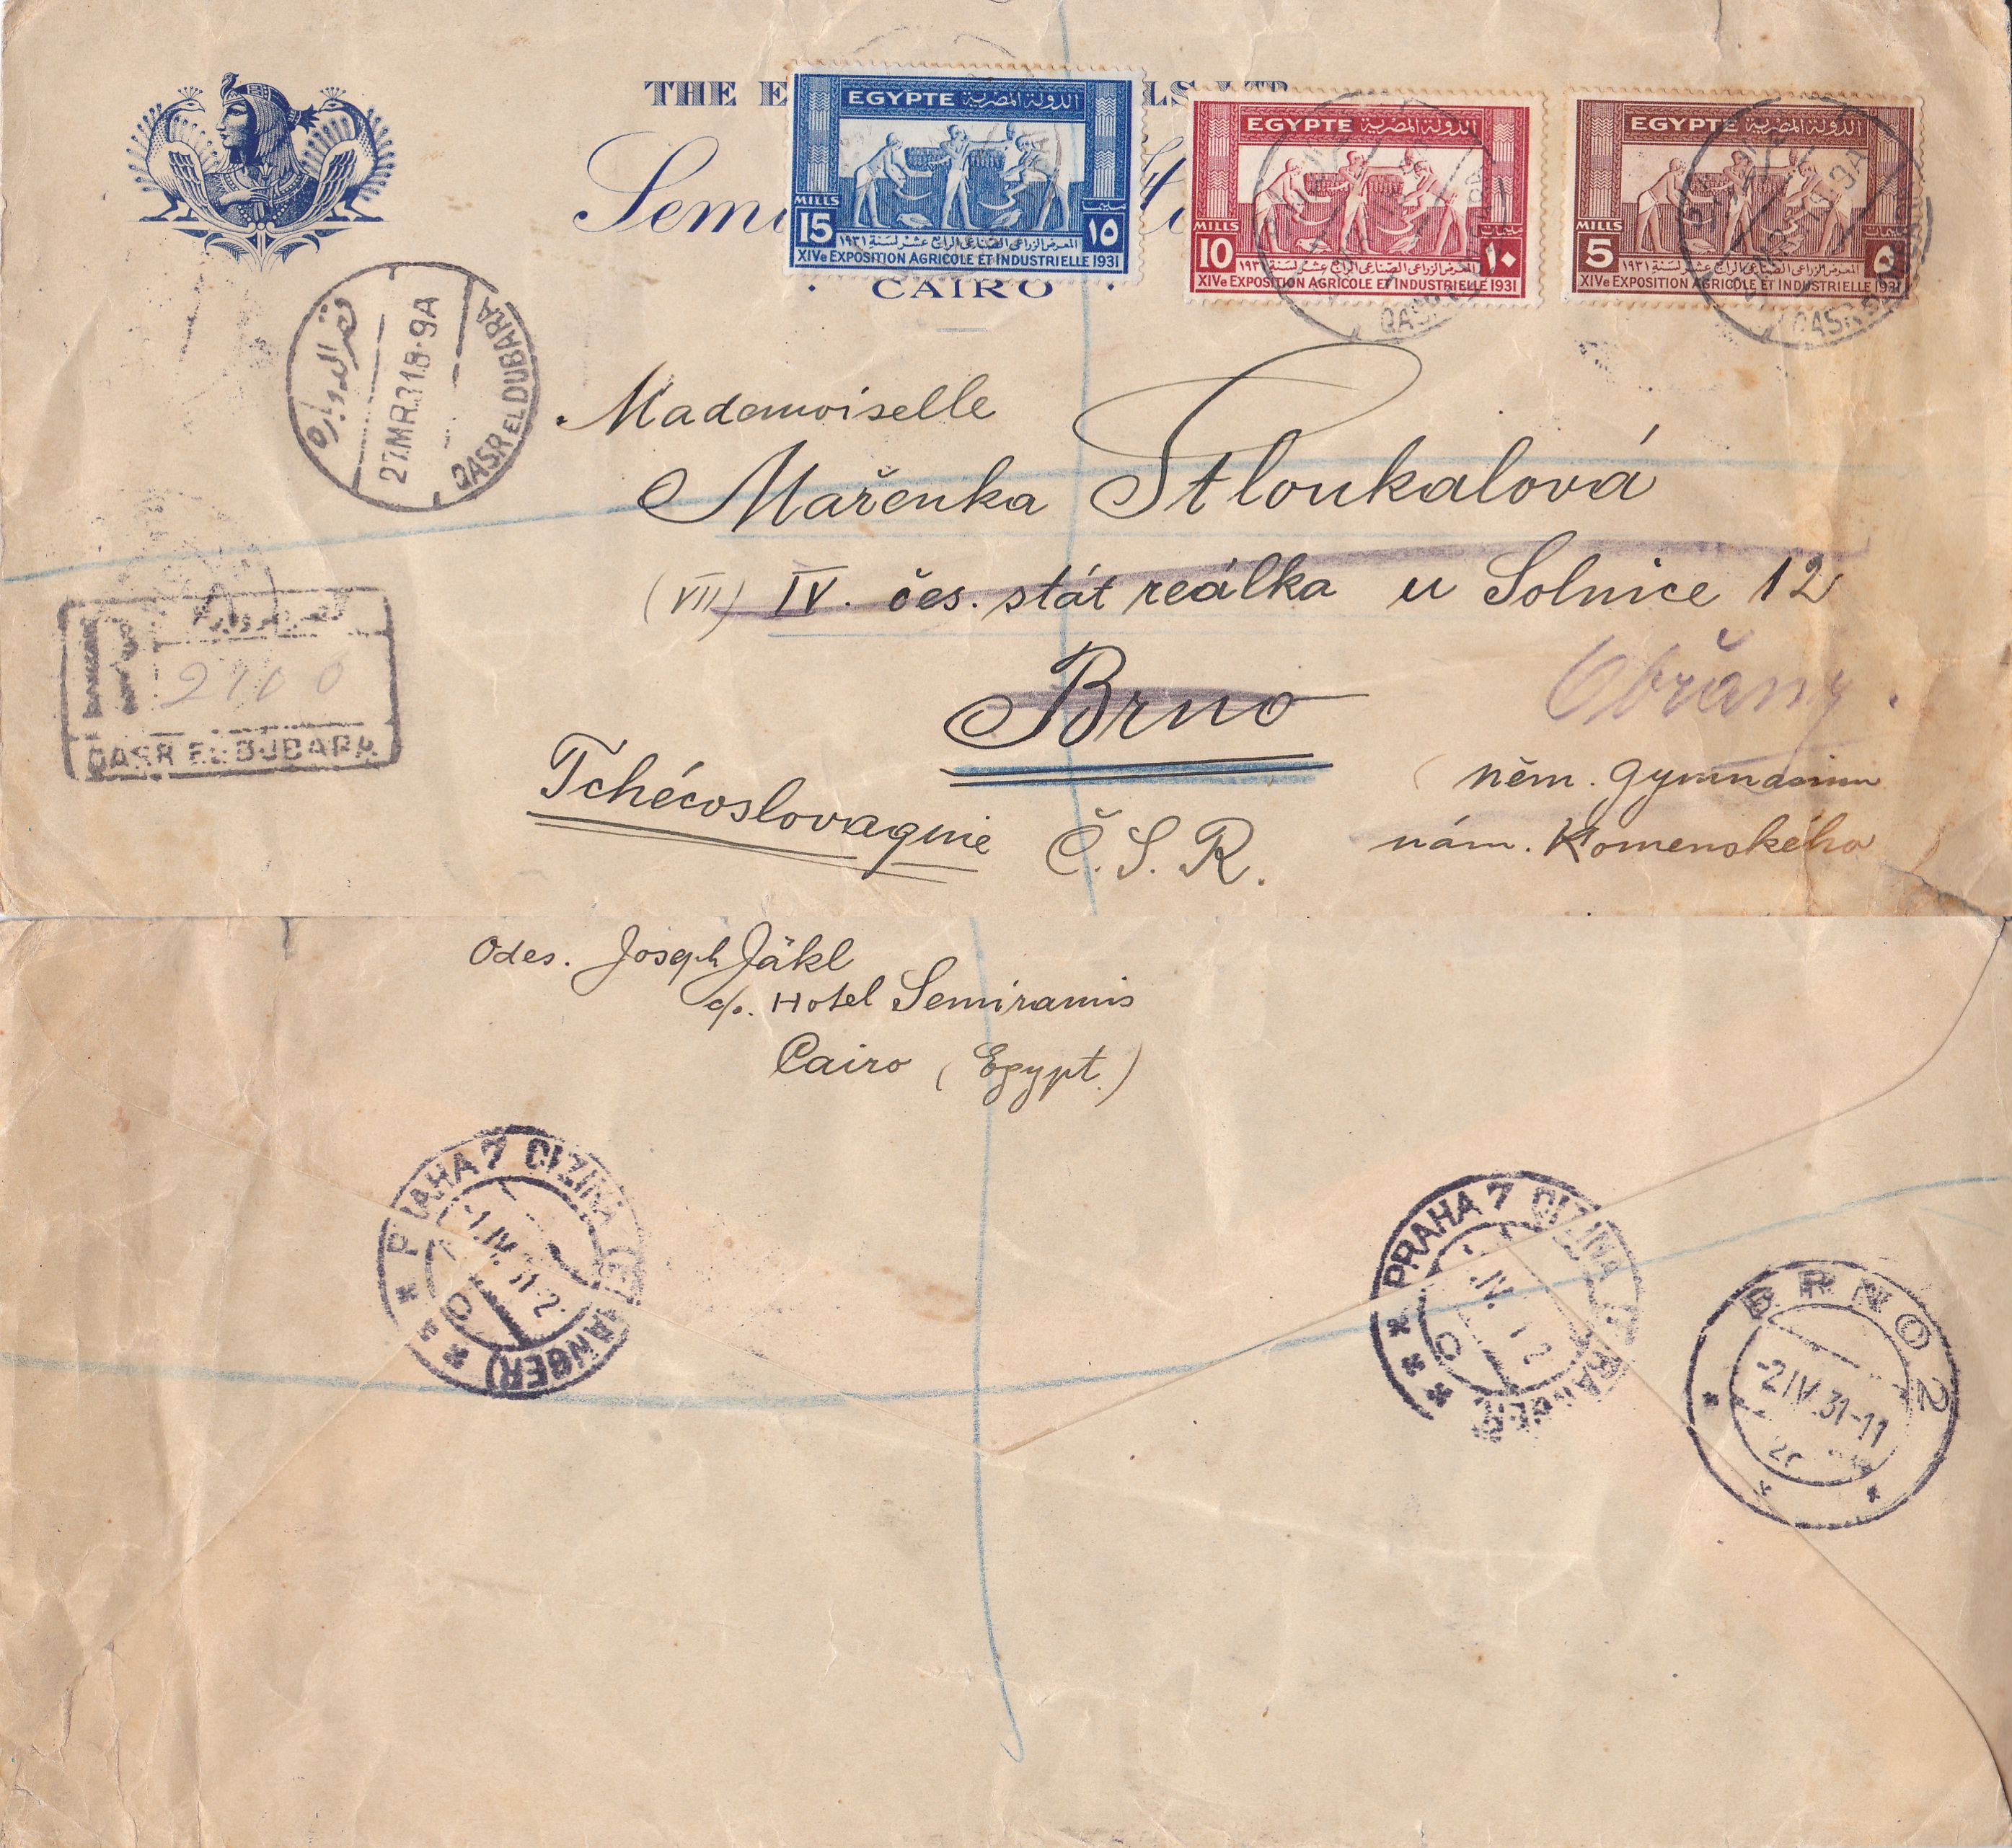 THE E
LS LTD
Semi
CAIRO
EGYPTE الدولة المصرية
MILLS
15
مليمات
١٥
المعرض الزراعى الصناعى الرابع عشر لسنة ١٩٣١
XIVe EXPOSITION AGRICOLE ET INDUSTRIELLE 1931
EGYPTE الدولة المصرية
MILLS
10
مليمات
١٠
المعرض الزراعى الصناعى الرابع عشر لسنة ١٩٣١
XIVe EXPOSITION AGRICOLE ET INDUSTRIELLE 1931
EGYPTE الدولة المصرية
MILLS
5
مليمات
٥
المعرض الزراعى الصناعى الرابع عشر لسنة ١٩٣١
XIVe EXPOSITION AGRICOLE ET INDUSTRIELLE 1931
قصر الدوبارة
27.MR.31.8-9A
QASR EL DUBARA
Mademoiselle
Mařenka Stloukalová
(VII) IV. čes. stát reálka u Solnice 12
Brno
Obřany.
Tchécoslovaquie Č.S.R.
(něm. gymnasium
nám. Komenského
R
2100
QASR EL DUBARA
Odes. Joseph Jäkl
c/o. Hotel Semiramis
Cairo (Egypt.)
PRAHA 7 CIZINA (ÉTRANGER)
-1.IV.31-2
PRAHA 7 CIZINA (ÉTRANGER)
BRNO 2
-2 IV.31-11